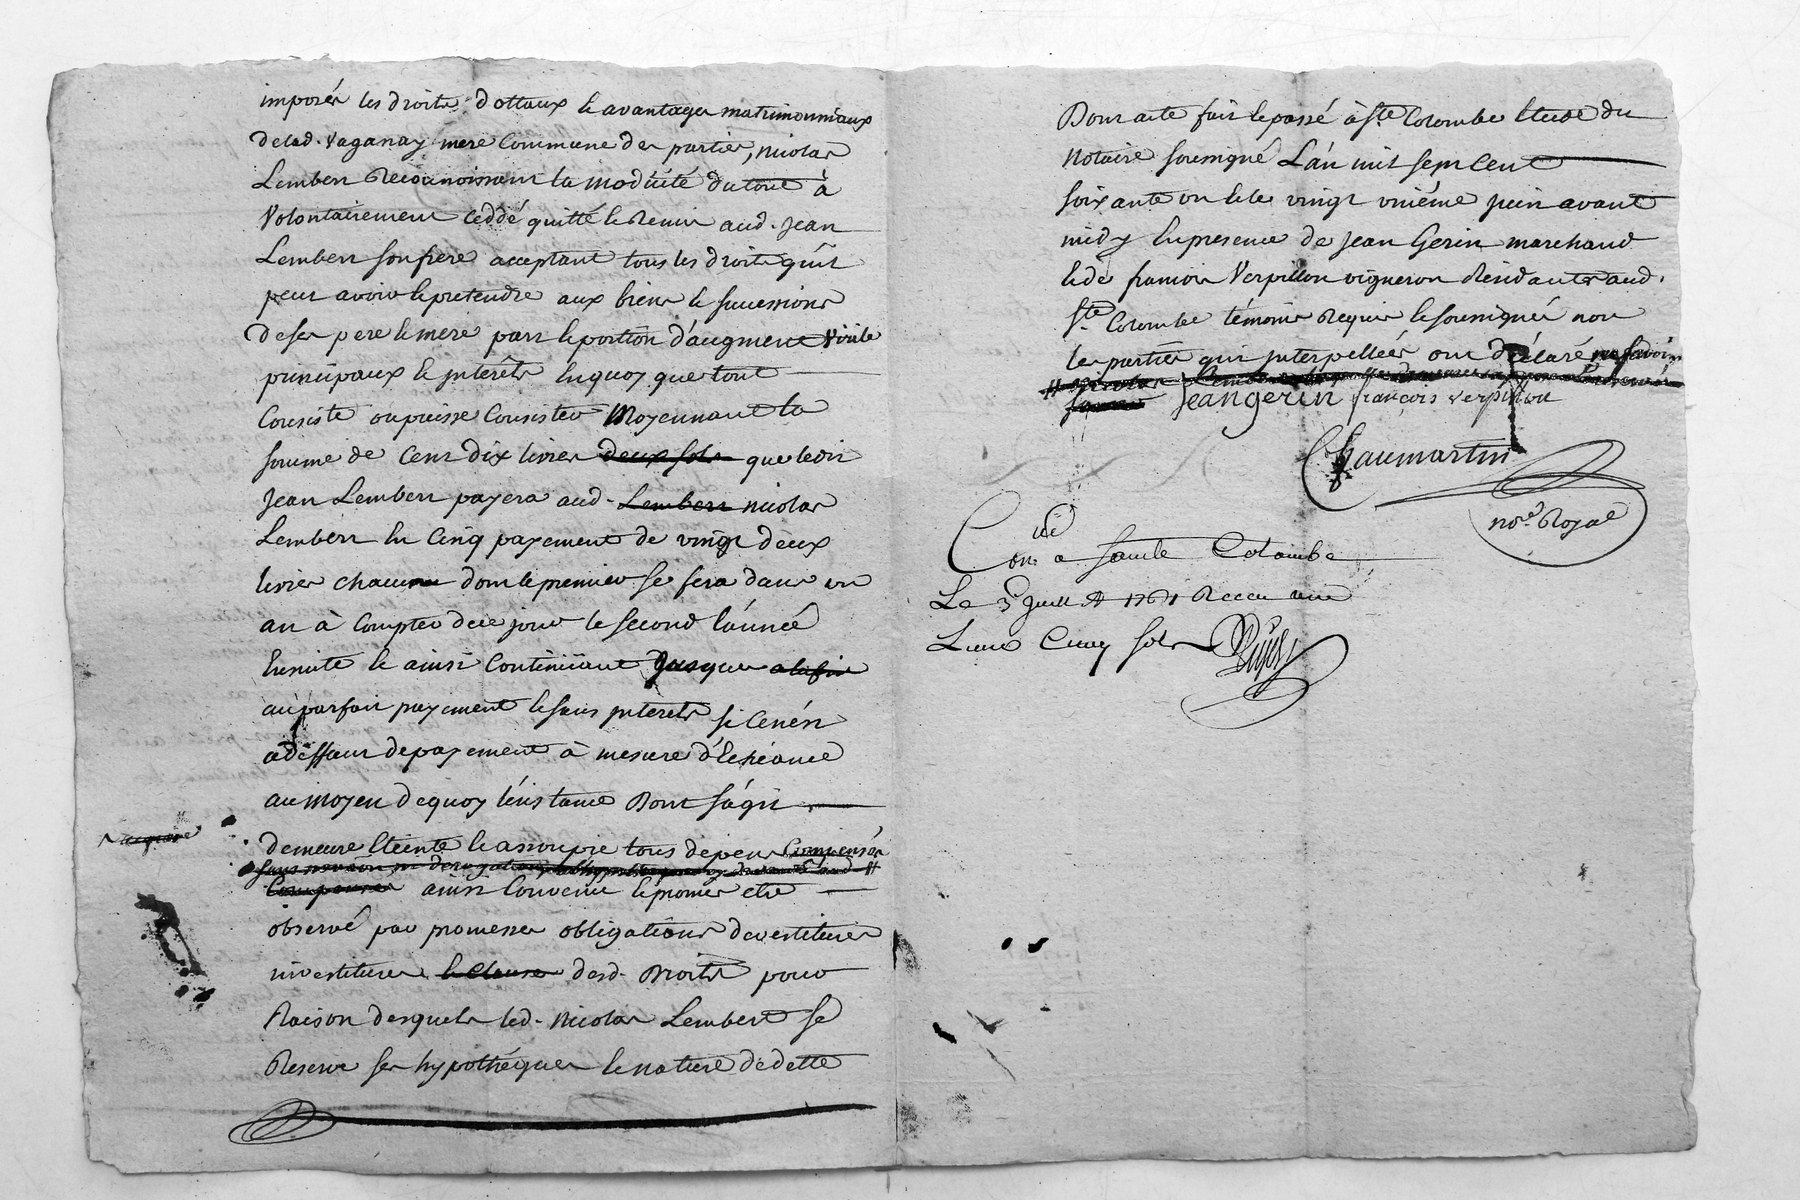 imposés les droits dottaux & avantages matrimonniaux
de lad. Vaganay mere commune des parties, nicolas
Lembert Reconnoissant la modicité du tout à
Volontairement ceddé quitté & Remis aud. Jean
Lembert son frere acceptant tous les droits qu'il
peut avoir & pretendre aux biens & successions
de ses pere & mere part & portion d'augment Virile
principaux & jnterêts En quoy que tout
Consiste ou puisse Consister Moyennant la
somme de Cent dix livres deux sols que ledit
Jean Lembert payera aud. Lembert nicolas
Lembert En Cinq payements de vingt deux
livres chacun dont le premier se fera dans un
an à Compter de ce jour le second l'année
Ensuite & ainsi Continüant Jusques a la fin
au parfait payement & sans jnterets si Cenést
a déffaut de payement à mesure d'Echéance
au moyen de quoy l'énstance Dont s'ágit
demeure Eteinte & assoupie tous depens Compensés
Compensés ainsi Convenu & promis etre
observé par promesses obligations devestitures
investitures & Clauses desd. Droits pour
Raison desquels led. Nicolas Lembert se
Reserve ses hypothéques & nature de dette
Dont acte fait & passé à Ste Colombe Etude du
Notaire soussigné L'án mil sept Cent
soixante un & le vingt uniéme juin avant
midy En presence de Jean Gerin marchand
& de françois Verpillon vigneron Résidants aud.
Ste Colombe témoins Requis & soussignés non
les parties qui jnterpellées ont déclaré ne scavoir
Jean gerin françois verpillon
Chaumartin
nore Royal
Con. a Sainte Colombe
Le 3 Juillet 1761 Receu une
Livre Cinq sols